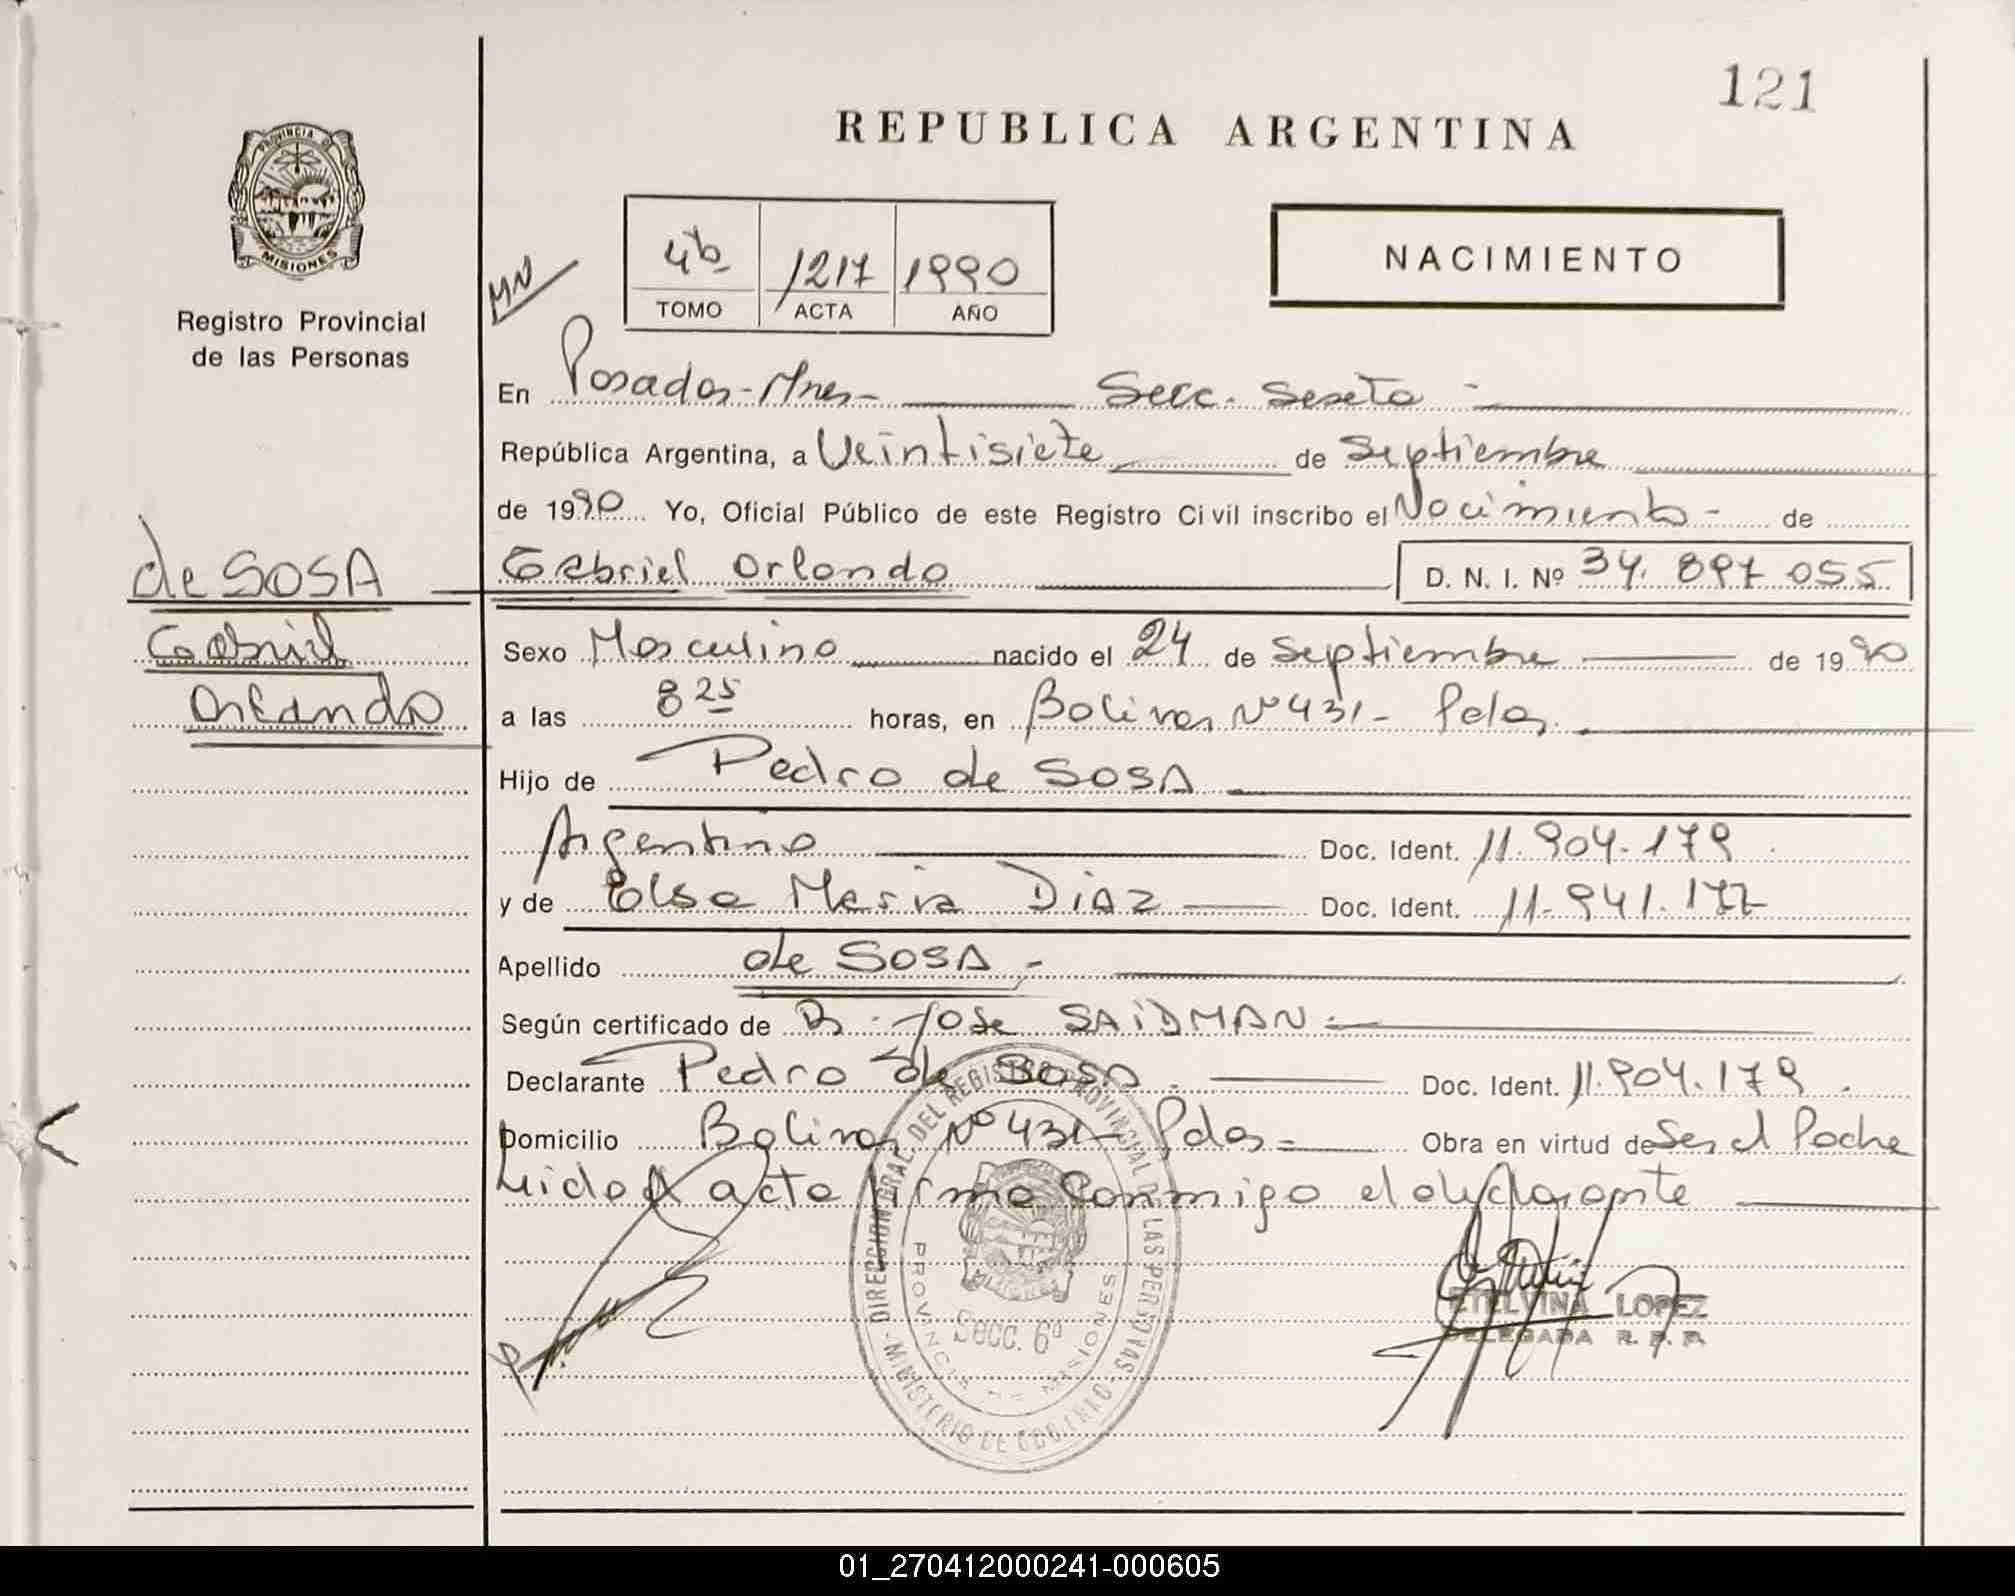 121
REPUBLICA ARGENTINA
PROVINCIA DE
MISIONES
Registro Provincial
de las Personas
MN
4b 1217 1990
TOMO ACTA AÑO
NACIMIENTO
En Posadas - Mnes - Secc. Sexta -
República Argentina, a Veintisiete de Septiembre
de 1990 Yo, Oficial Público de este Registro Civil inscribo el Nacimiento - de
de SOSA Gabriel Orlando D. N. I. Nº 34. 897 055
Gabriel
Orlando
Sexo Masculino nacido el 24 de Septiembre de 1990
a las 8 25 horas, en Bolivar Nº 431 - Pdas.
Hijo de Pedro de SOSA
Argentino Doc. Ident. 11.904.179
y de Elsa Maria DIAZ Doc. Ident. 11.941.177
Apellido de SOSA -
Según certificado de Dr. Jose SAIDMAN -
Declarante Pedro de SOSA Doc. Ident. 11.904.179.
Domicilio Bolivar Nº 431 - Pdas - Obra en virtud de Ser el Padre
Leido el acta firma conmigo el declarante
DIRECCION GRAL. DEL REGISTRO PROVINCIAL DE LAS PERSONAS
- MINISTERIO DE GOBIERNO -
PROVINCIA DE MISIONES
Secc. 6ª
ETELVINA LOPEZ
DELEGADA R. P. P.
01_270412000241-000605